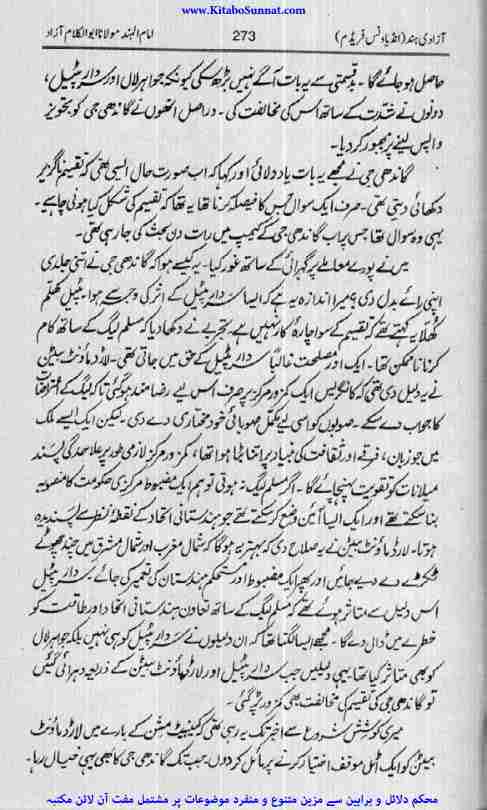 www.KitaboSunnat.com
آزادی ہند (انڈیا ونس فریڈم) 273 امام الہند مولانا ابوالکلام آزاد
حاصل ہو جائے گا۔ بدقسمتی سے یہ بات آگے نہیں بڑھ سکی کیونکہ جواہر لال اور سردار پٹیل،
دونوں نے شدت کے ساتھ اس کی مخالفت کی۔ دراصل انھوں نے گاندھی جی کو تجویز
واپس لینے پر مجبور کر دیا۔
گاندھی جی نے مجھے یہ بات یاد دلائی اور کہا کہ اب صورت حال ایسی تھی کہ تقسیم ناگزیر
دکھائی دیتی تھی۔ صرف ایک سوال جس کا فیصلہ کرنا تھا یہ تھا کہ تقسیم کی شکل کیا ہونی چاہیے۔
یہی وہ سوال تھا جس پر اب گاندھی جی کے کیمپ میں رات دن بحث کی جا رہی تھی۔
میں نے پورے معاملے پر گہرائی کے ساتھ غور کیا۔ یہ کیسے ہوا کہ گاندھی جی نے اتنی جلدی
اپنی رائے بدل دی؟ میرا اندازہ یہ ہے کہ ایسا سردار پٹیل کے اثر کی وجہ سے ہوا۔ پٹیل کھلم
کھلا یہ کہتے تھے کہ تقسیم کے سوا چارۂ کار نہیں ہے۔ تجربے نے دکھا دیا کہ مسلم لیگ کے ساتھ کام
کرنا ناممکن تھا۔ ایک اور مصلحت غالباً سردار پٹیل کے حق میں جاتی تھی۔ لارڈ ماؤنٹ بیٹن
نے یہ دلیل دی تھی کہ کانگریس ایک کمزور مرکز پر صرف اس لیے رضا مند ہو گئی تھی کہ لیگ کے اعتراضات
کا جواب دے سکے۔ صوبوں کو اسی لیے مکمل صوبائی خود مختاری دے دی۔ لیکن ایک ایسے ملک
میں جو زبان، فرقے اور ثقافت کی بنیاد پر اتنا بٹا ہوا تھا، کمزور مرکز لازمی طور پر علاحدگی پسند
میلانات کو تقویت پہنچائے گا۔ اگر مسلم لیگ نہ ہوتی تو ہم ایک مضبوط مرکزی حکومت کا منصوبہ
بنا سکتے تھے اور ایک ایسا آئین وضع کر سکتے تھے جو ہندستانی اتحاد کے نقطۂ نظر سے پسندیدہ
ہوتا۔ لارڈ ماؤنٹ بیٹن نے یہ صلاح دی کہ بہتر یہ ہوگا کہ شمال مغرب اور شمال مشرق میں چند چھوٹے
ٹکڑے دے دیے جائیں اور پھر ایک مضبوط اور مستحکم ہندستان کی تعمیر کی جائے۔ سردار پٹیل
اس دلیل سے متاثر ہوئے تھے کہ مسلم لیگ کے ساتھ تعاون ہندستانی اتحاد اور طاقت کو
خطرے میں ڈال دے گا۔ مجھے ایسا لگتا تھا کہ ان دلیلوں نے سردار پٹیل کو ہی نہیں بلکہ جواہر لال
کو بھی متاثر کیا تھا۔ یہی دلیلیں جب سردار پٹیل اور لارڈ ماؤنٹ بیٹن کے ذریعہ دہرائی گئیں
تو گاندھی جی کی تقسیم کی مخالفت بھی کمزور پڑ گئی۔
میری کوشش شروع سے اخیر تک یہ رہی تھی کہ کیبینٹ مشن کے بارے میں لارڈ ماؤنٹ
بیٹن کو ایک اٹل موقف اختیار کرنے پر مائل کر دوں۔ جب تک گاندھی جی کا بھی یہی خیال رہا۔
محکم دلائل و براہین سے مزین متنوع و منفرد موضوعات پر مشتمل مفت آن لائن مکتبہ